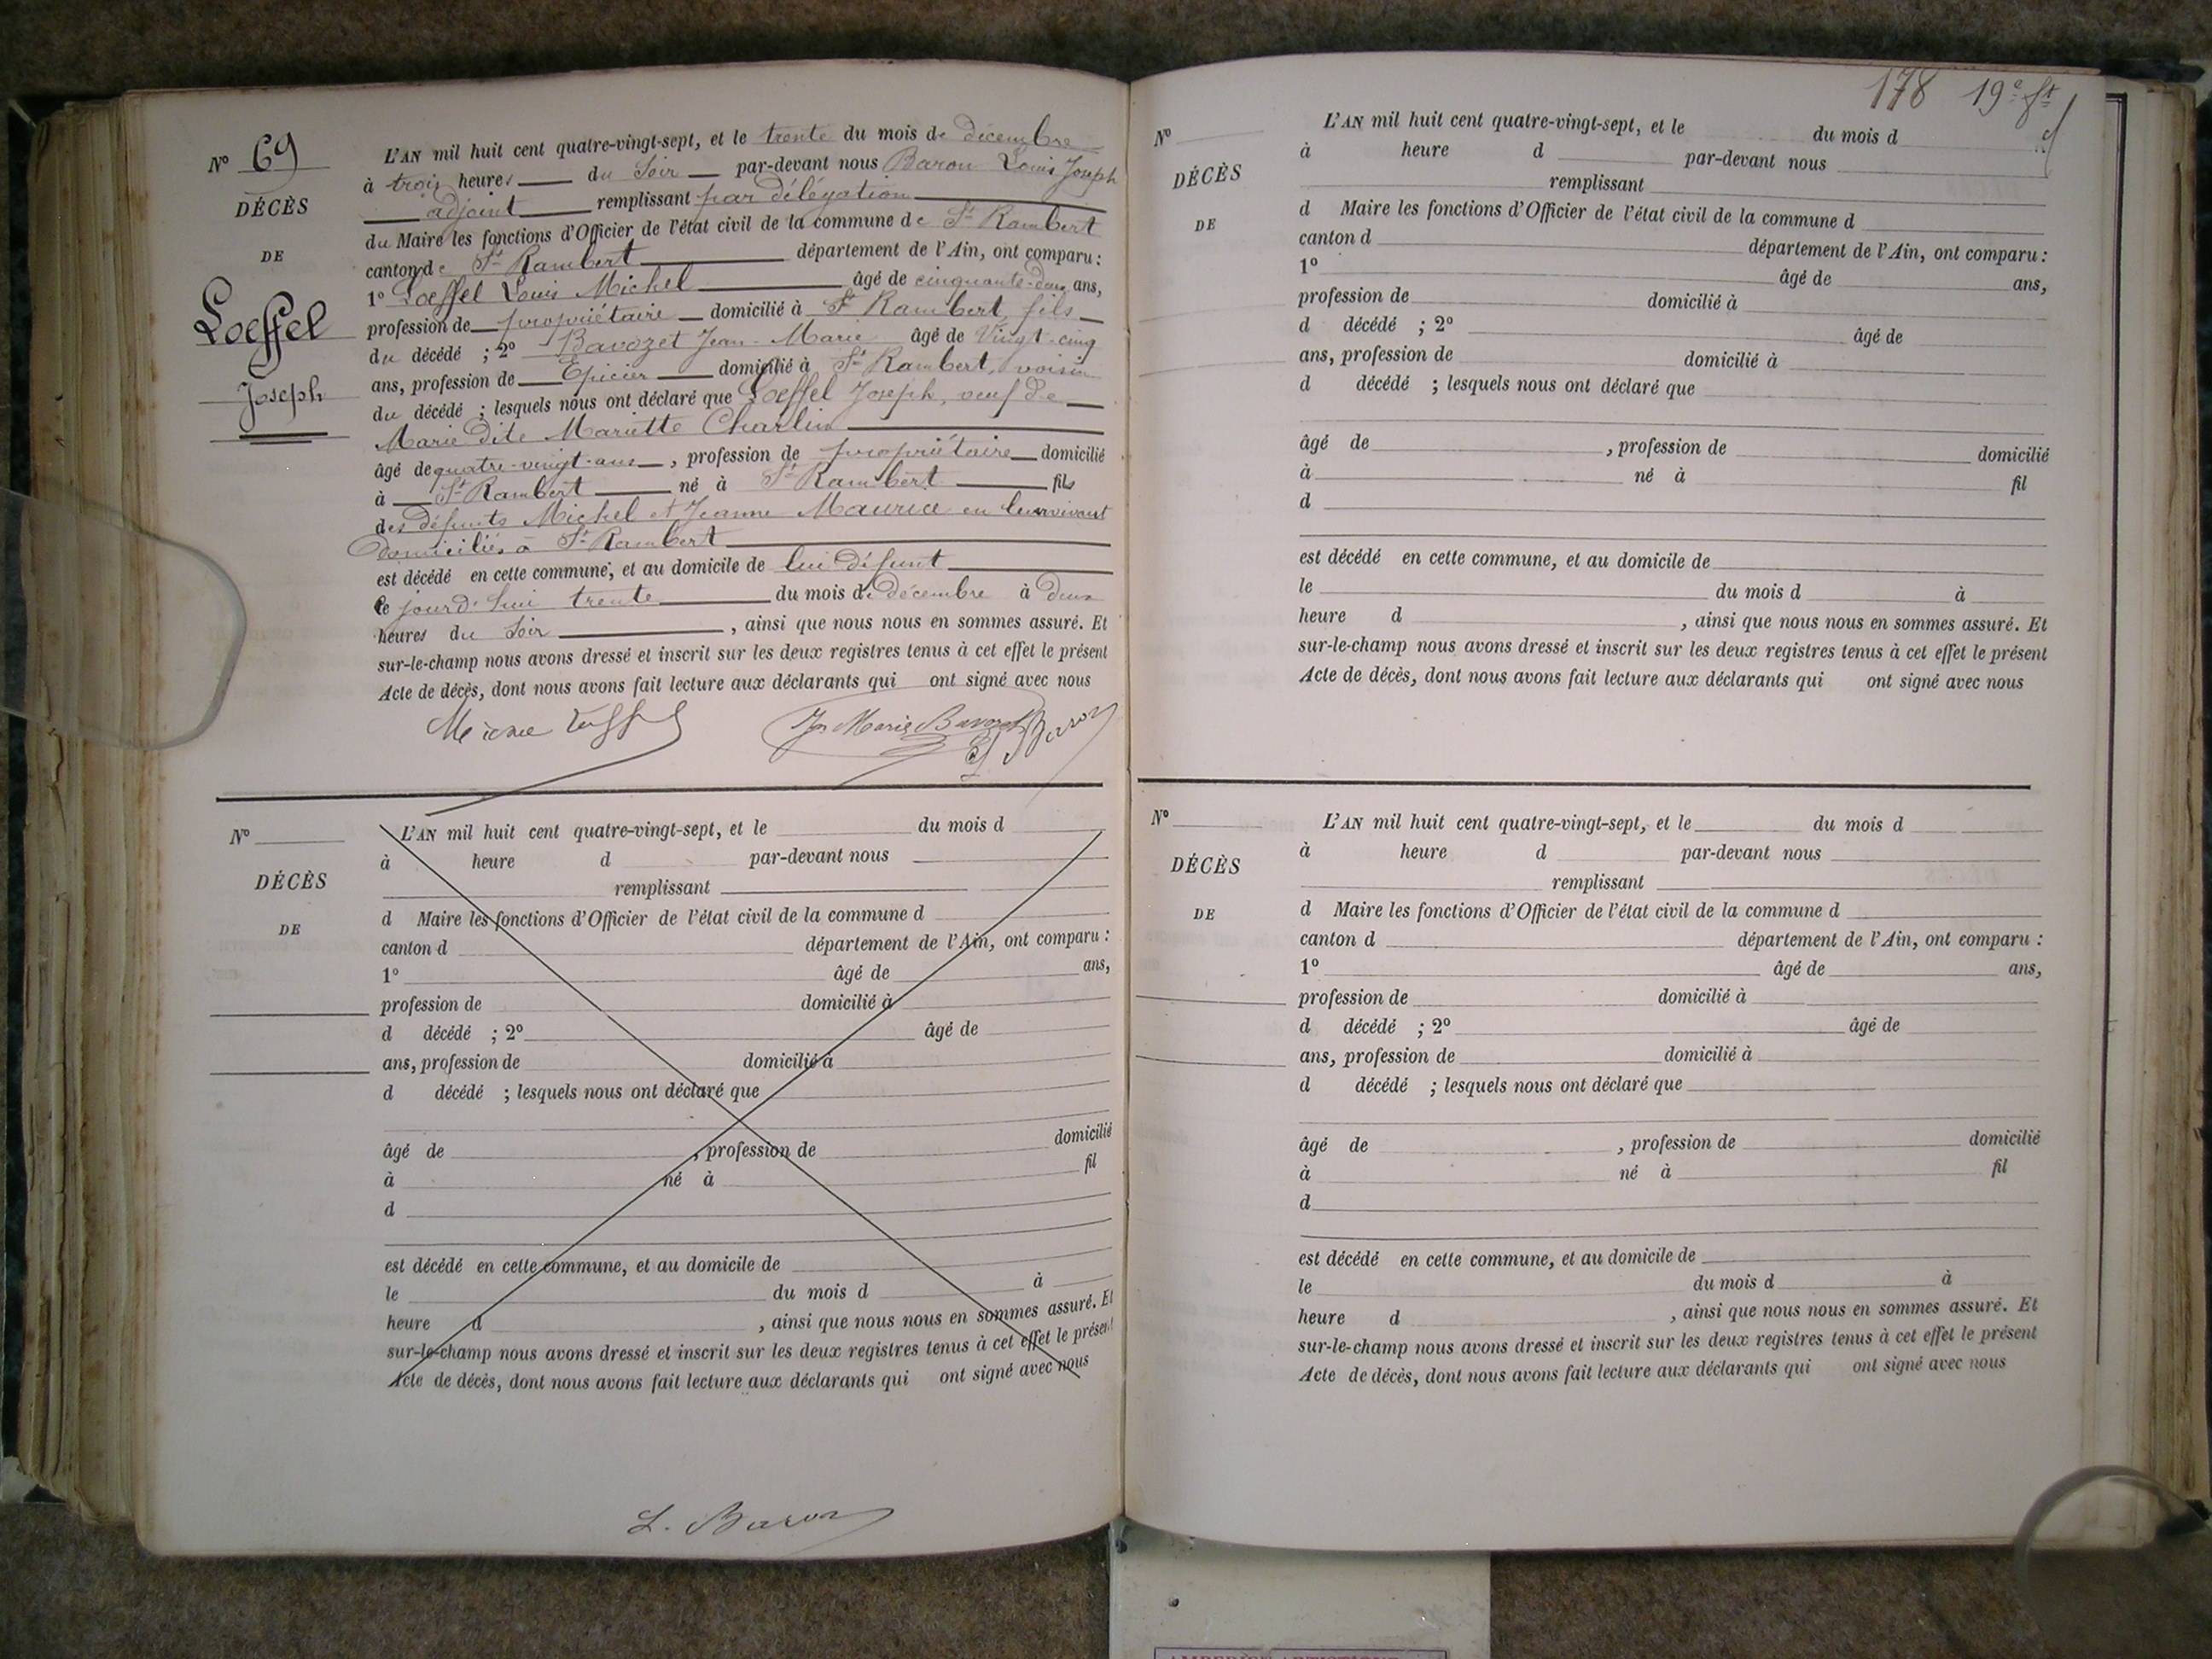 Nº 69
DÉCÈS
DE
Loeffel
Joseph
L'AN mil huit cent quatre-vingt-sept, et le trente du mois de décembre
à trois heures du Soir par-devant nous Baron Louis Joseph
adjoint remplissant par délégation
du Maire les fonctions d'Officier de l'état civil de la commune de St Rambert
canton de St Rambert département de l'Ain, ont comparu :
1º Loeffel Louis Michel âgé de cinquante-deux ans,
profession de propriétaire domicilié à St Rambert, fils
du décédé ; 2º Bavozet Jean-Marie âgé de Vingt-cinq
ans, profession de Epicier domicilié à St Rambert, voisin
du décédé ; lesquels nous ont déclaré que Loeffel Joseph, veuf de
Marie dite Mariette Charlin
âgé de quatre-vingt-ans, profession de propriétaire domicilié
à St Rambert né à St Rambert fils
des défunts Michel et Jeanne Maurice en leur vivant
Domiciliés à St Rambert
est décédé en cette commune, et au domicile de lui défunt
le jourd'hui trente du mois de décembre à deux
heures du Soir, ainsi que nous nous en sommes assuré. Et
sur-le-champ nous avons dressé et inscrit sur les deux registres tenus à cet effet le présent
Acte de décès, dont nous avons fait lecture aux déclarants qui ont signé avec nous
Jn Marie Bavozet
L. Baron
Nº
DÉCÈS
DE
L'AN mil huit cent quatre-vingt-sept, et le du mois d
à heure d par-devant nous
remplissant
d Maire les fonctions d'Officier de l'état civil de la commune d
canton d département de l'Ain, ont comparu :
1º âgé de ans,
profession de domicilié à
d décédé ; 2º âgé de
ans, profession de domicilié à
d décédé ; lesquels nous ont déclaré que
âgé de , profession de domicilié
à né à fil
d
est décédé en cette commune, et au domicile de
le du mois d à
heure d , ainsi que nous nous en sommes assuré. Et
sur-le-champ nous avons dressé et inscrit sur les deux registres tenus à cet effet le présent
Acte de décès, dont nous avons fait lecture aux déclarants qui ont signé avec nous
L. Baron
178 19e ft
Nº
DÉCÈS
DE
L'AN mil huit cent quatre-vingt-sept, et le du mois d
à heure d par-devant nous
remplissant
d Maire les fonctions d'Officier de l'état civil de la commune d
canton d département de l'Ain, ont comparu :
1º âgé de ans,
profession de domicilié à
d décédé ; 2º âgé de
ans, profession de domicilié à
d décédé ; lesquels nous ont déclaré que
âgé de , profession de domicilié
à né à fil
d
est décédé en cette commune, et au domicile de
le du mois d à
heure d , ainsi que nous nous en sommes assuré. Et
sur-le-champ nous avons dressé et inscrit sur les deux registres tenus à cet effet le présent
Acte de décès, dont nous avons fait lecture aux déclarants qui ont signé avec nous
Nº
DÉCÈS
DE
L'AN mil huit cent quatre-vingt-sept, et le du mois d
à heure d par-devant nous
remplissant
d Maire les fonctions d'Officier de l'état civil de la commune d
canton d département de l'Ain, ont comparu :
1º âgé de ans,
profession de domicilié à
d décédé ; 2º âgé de
ans, profession de domicilié à
d décédé ; lesquels nous ont déclaré que
âgé de , profession de domicilié
à né à fil
d
est décédé en cette commune, et au domicile de
le du mois d à
heure d , ainsi que nous nous en sommes assuré. Et
sur-le-champ nous avons dressé et inscrit sur les deux registres tenus à cet effet le présent
Acte de décès, dont nous avons fait lecture aux déclarants qui ont signé avec nous